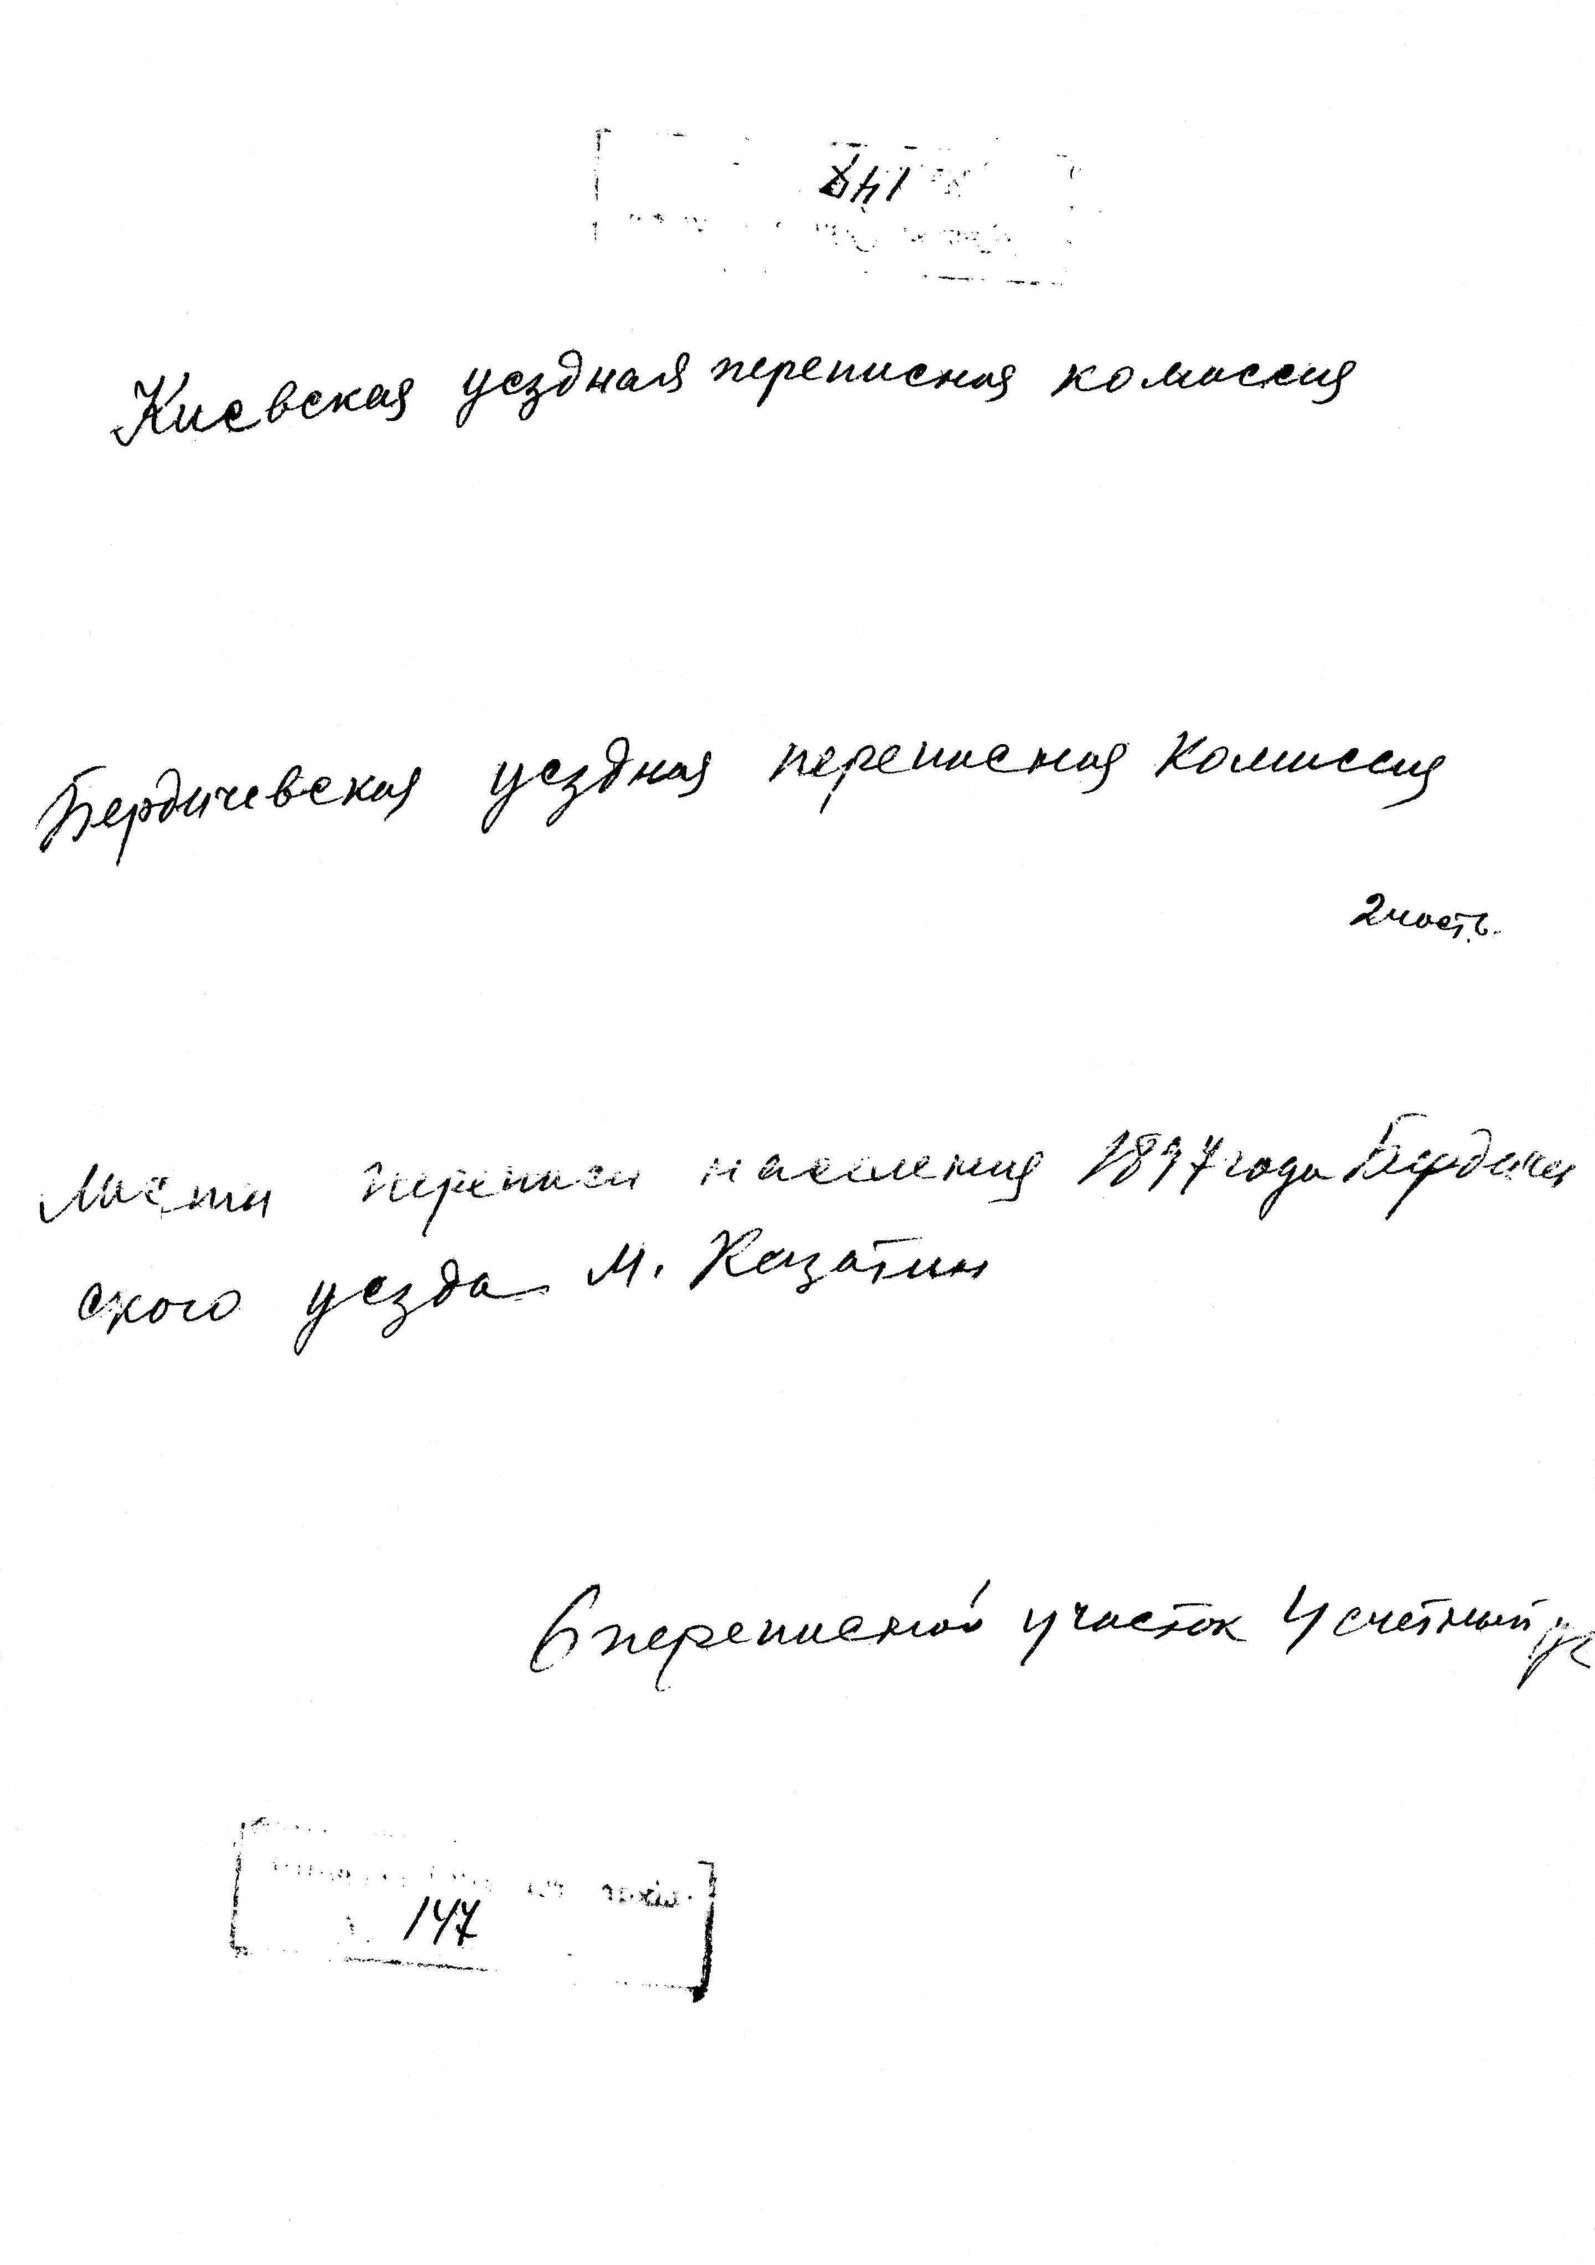 148
Киевская уездная переписная комиссия
Бердичевская уездная переписная комиссия
2 часть.
Листы переписи населения 1897 года Бердичев
ского уезда м. Казатин
6 переписной участок 4 счетный
147